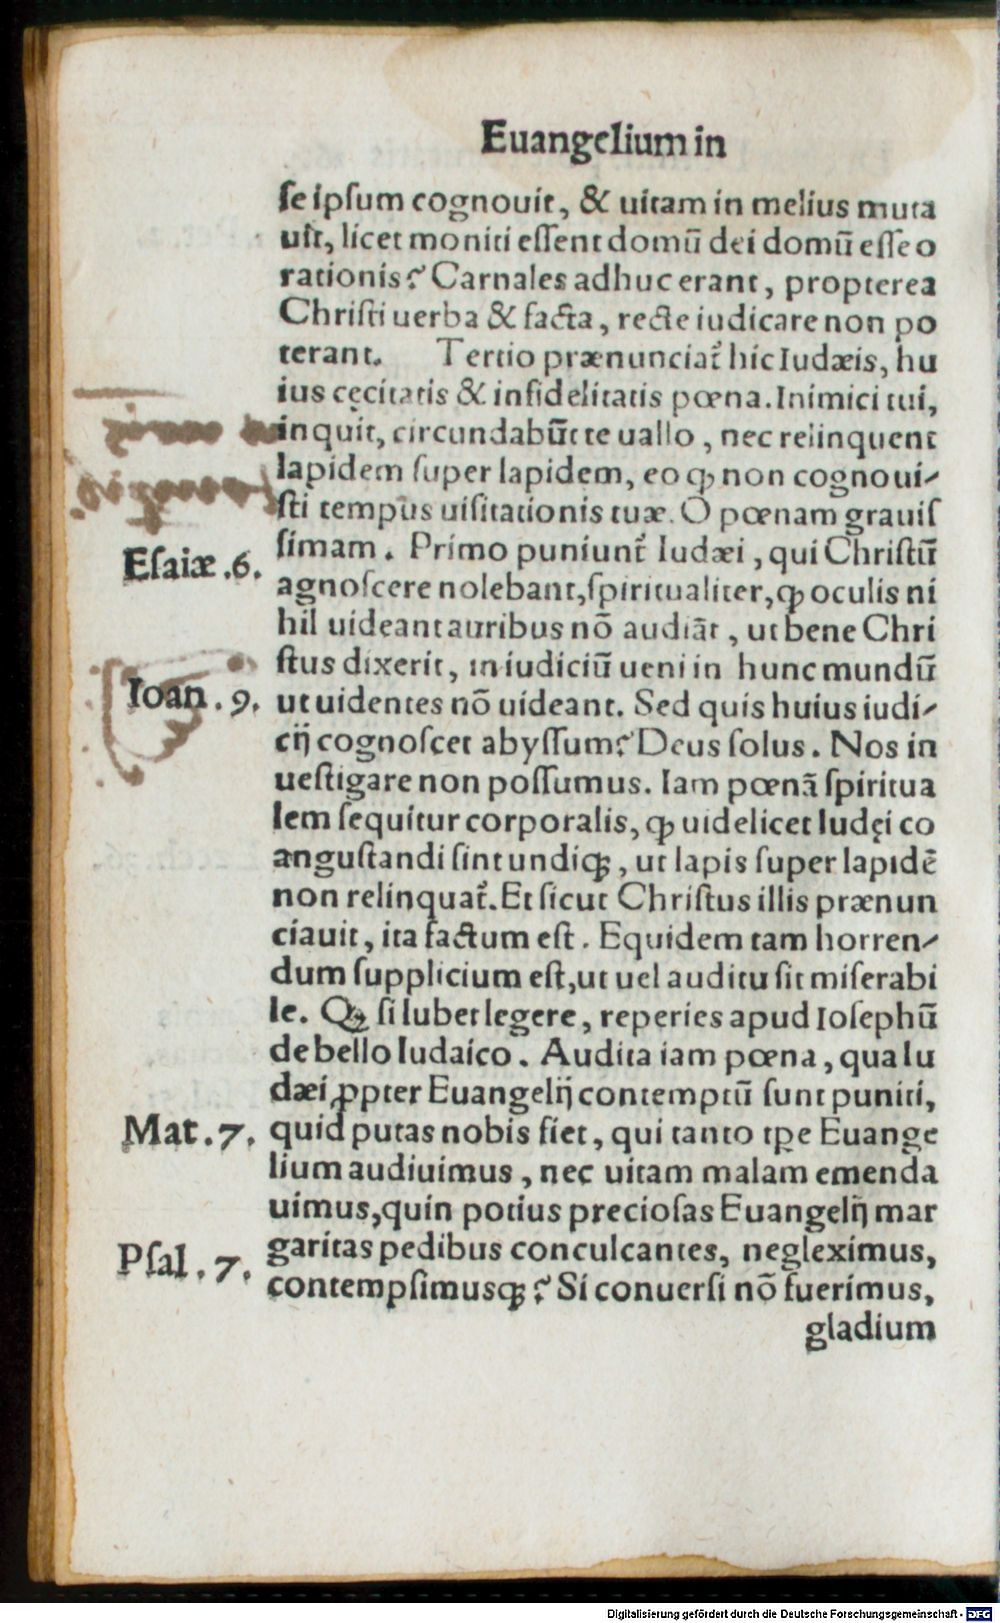 Euangelium in
ſe ipſum cognouit, & uitam in melius muta
uit, licet moniti eſſent domū dei domū eſſe o
rationis? Carnales adhuc erant, propterea
Chriſti uerba & facta, recte iudicare non po
terant. Tertio prænunciat᷑ hic Iudæis, hu
ius cęcitatis & infidelitatis pœna. Inimici tui,
inquit, circundabūt te uallo, nec relinquent
lapidem ſuper lapidem, eo ꝙ non cognoui-
ſti tempus uiſitationis tuæ. O pœnam grauiſ
ſimam. Primo puniunt᷑ Iudæi, qui Chriſtū
Eſaiæ .6.
agnoſcere nolebant, ſpiritualiter, ꝙ oculis ni
hil uideant auribus nō audiāt, ut bene Chri
ſtus dixerit, in iudiciū ueni in hunc mundū
Ioan. 9.
ut uidentes nō uideant. Sed quis huius iudi-
cij cognoſcet abyſſum? Deus ſolus. Nos in
ueſtigare non poſſumus. Iam pœnā ſpiritua
lem ſequitur corporalis, ꝙ uidelicet Iudęi co
anguſtandi ſint undiqꝫ, ut lapis ſuper lapidē
non relinquat᷑. Et ſicut Chriſtus illis prænun
ciauit, ita factum eſt. Equidem tam horren-
dum ſupplicium eſt, ut uel auditu ſit miſerabi
le. Qꝫ ſi lubet legere, reperies apud Ioſephū
de bello Iudaico. Audita iam pœna, qua Iu
dæi ꝓpter Euangelij contemptū ſunt puniti,
Mat. 7.
quid putas nobis fiet, qui tanto tp̄e Euange
lium audiuimus, nec uitam malam emenda
uimus, quin potius precioſas Euangelij mar
garitas pedibus conculcantes, negleximus,
Pſal. 7.
contempſimusqꝫ? Si conuerſi nō fuerimus,
gladium
Digitalisierung gefördert durch die Deutsche Forschungsgemeinschaft - DFG